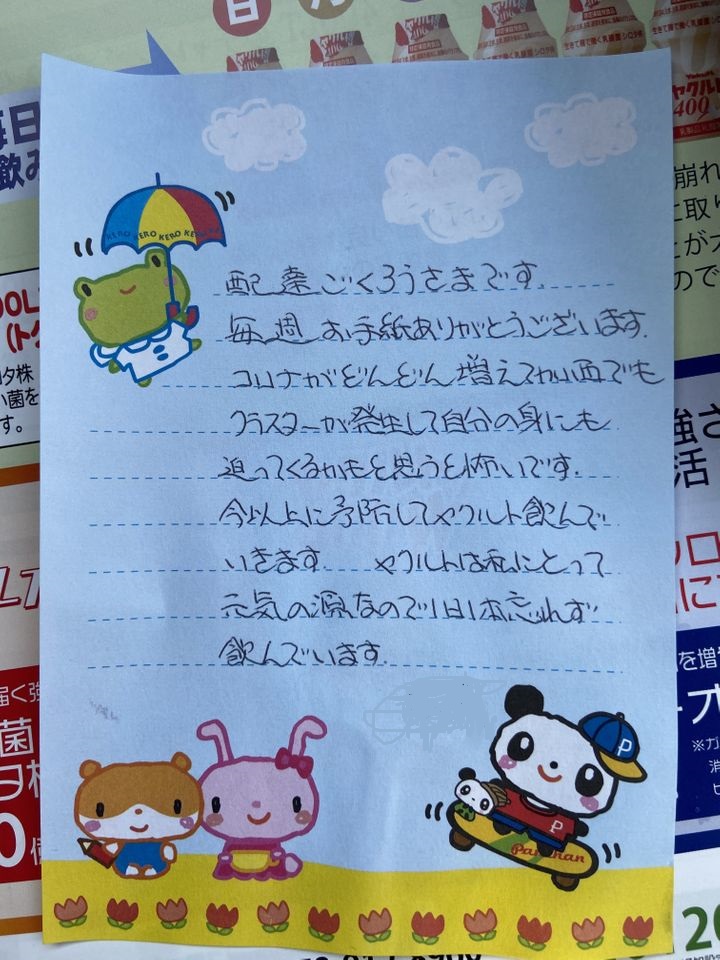 日
月
毎日
飲み
生きて腸で働く乳酸菌 シロタ株
Yakult
ヤクルト
400
崩れ
に取り
とが
ので
KERO KERO KERO KERO
配達ごくろうさまです。
毎週お手紙ありがとうございます。
コロナがどんどん増えて
クラスターが発生して自分の身にも
迫ってくるかもと思うと怖いです。
今以上に予防してヤクルト飲んで
いきます ヤクルトは私にとって
元気の源なので1日1本忘れず
飲んでいます。
タ株
い菌を
す。
強さ
活
を増や
オ
※ガ
消
届く強
菌
タ株
P
P
20